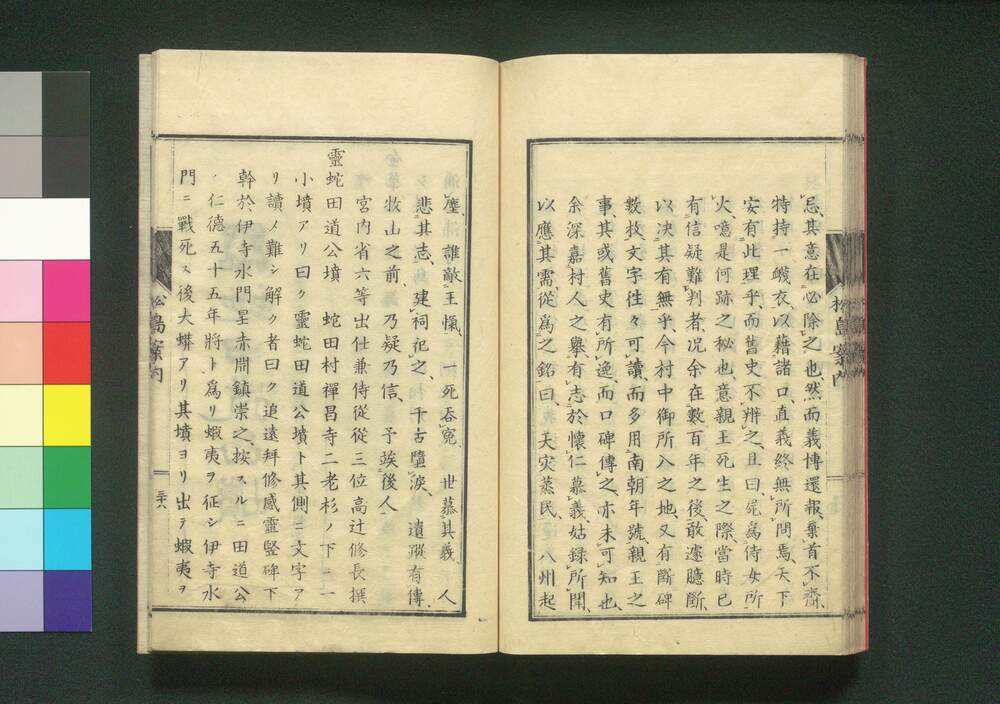 忌、其意在必除之也、然而義博還報、棄首不齎、
特持一襪衣、以藉諸口、直義終無所問焉、天下
安有此理乎、而舊史不辨之、且曰、屍爲侍女所
火、噫是何跡之秘也、意親王死生之際、當時已
有信疑難判者、况余在數百年之後、敢遽臆斷、
以决其有無乎、今村中御所入之地、又有斷碑
數枚、文字往々可讀、而多用南朝年號、親王之
事、其或舊史有所逸、而口碑傳之、亦未可知也、
余深嘉村人之擧、有志於懷仁慕義、姑録所聞、
以應其需、從爲之銘曰、天灾蒸民、八州起
塵、誰敵王愾、一死呑寃、世慕其義、人
悲其志、建祠祀之、千古墮淚、遺蹤有傳、
牧山之前、乃疑乃信、予竢後人、
宮内省六等出仕兼侍從從三位高辻修長撰
靈蛇田道公墳 蛇田村禪昌寺二老杉ノ下ニ一
小墳アリ曰ク靈蛇田道公墳ト其側ニ文字ア
リ讀メ難シ解ク者曰ク追遠拜修感靈竪碑下
幹於伊寺水門星赤間鎭崇之、按スルニ田道公
ハ仁德五十五年將ト爲リ蝦夷ヲ征シ伊寺水
門ニ戰死ス後大蟒アリ其墳ヨリ出テ蝦夷ヲ
松島案内
松島案内
三十六